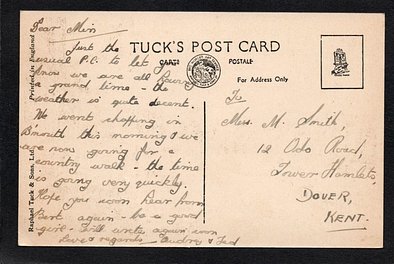 TUCK'S POST CARD
CARTE POSTALE
For Address Only
Printed in England
Raphael Tuck & Sons, Ltd.
Dear Min
Just the
usual P.C. to let you
know we are all having
a grand time - the
weather is quite decent.
We went shopping in
B'mouth this morning & we
are now going for a
country walk - the time
is going very quickly.
Hope you soon hear from
Bert again - be a good
girl - Will write again soon
Love & regards Audrey & Ted
To
Mrs. M. Smith,
12 Odo Road,
Tower Hamlets,
DOVER,
KENT.